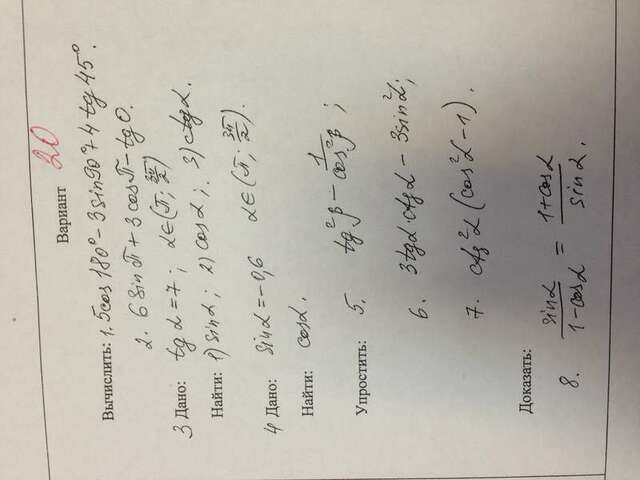 Вариант 20
Вычислить: 1. 5cos 180° - 3sin90° + 4 tg 45°.
2. 6 sin π + 3 cosπ - tg 0.
3 Дано: tg α = 7; α ∈ (π; 3π/2)
Найти: 1) sinα; 2) cosα; 3) ctgα.
4 Дано: sinα = -0,6 α ∈ (π; 3π/2).
Найти: cosα.
Упростить: 5. tg²β - 1/cos²β;
6. 3tgα·ctgα - 3sin²α;
7. ctg²α (cos²α - 1).
Доказать:
8. sinα/(1-cosα) = (1+cosα)/sinα.